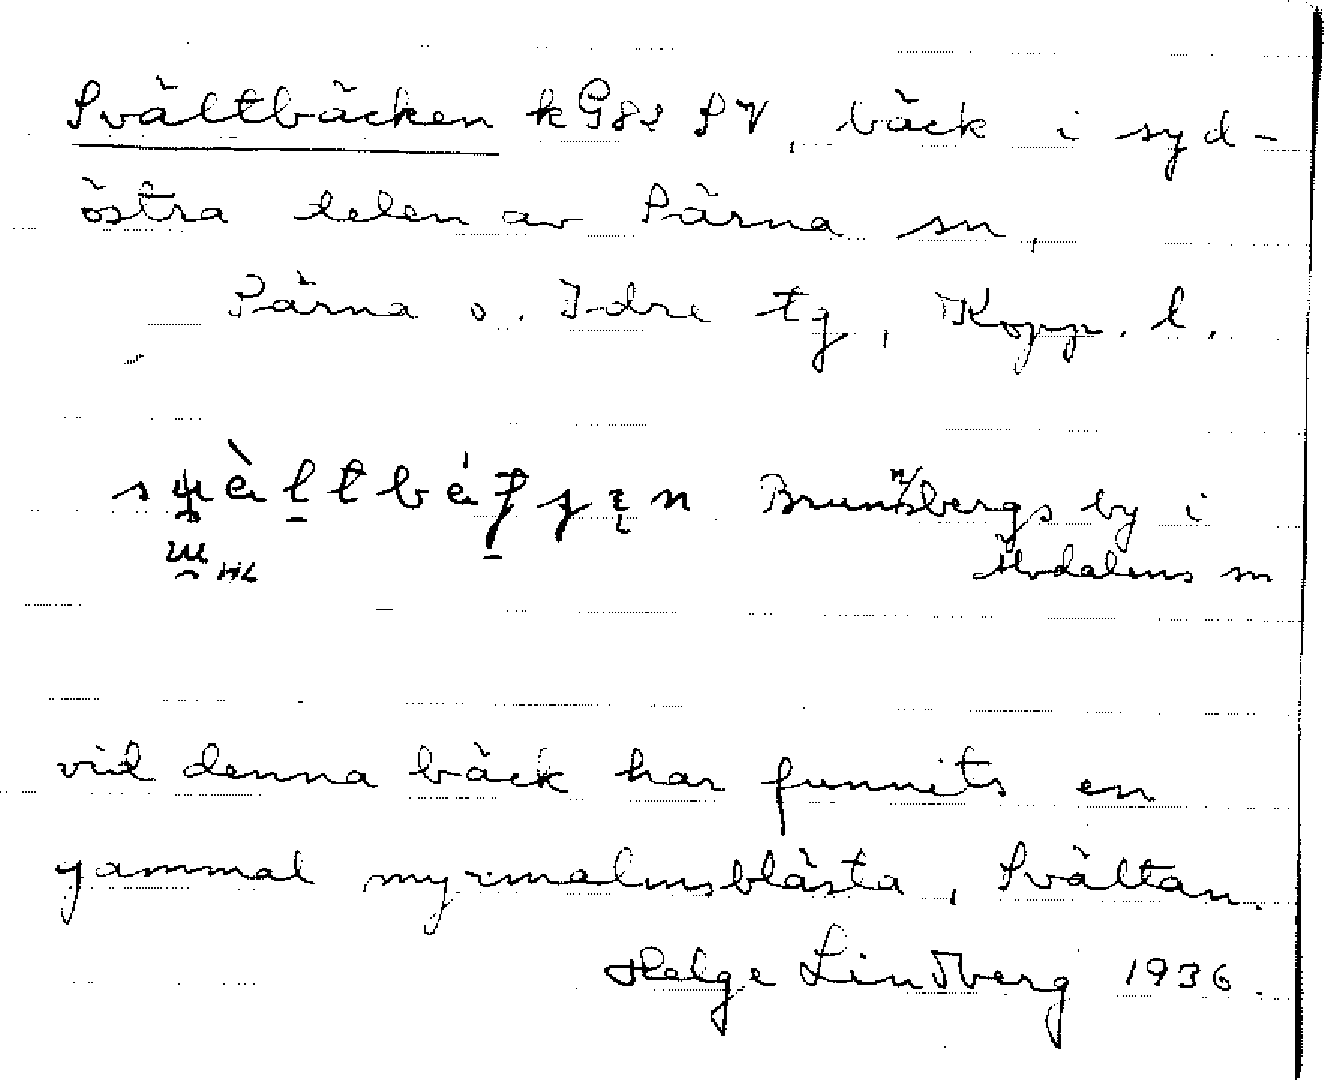 Svältbäcken k G82 SV, bäck i syd-
östra delen av Särna sn,
Särna o. Idre tg, Kopp. l.
Brunnsbergs by i
HL
Älvdalens sn
vid denna bäck har funnits en
gammal myrmalmsblästa, Svältan.
Helge Lindberg 1936.